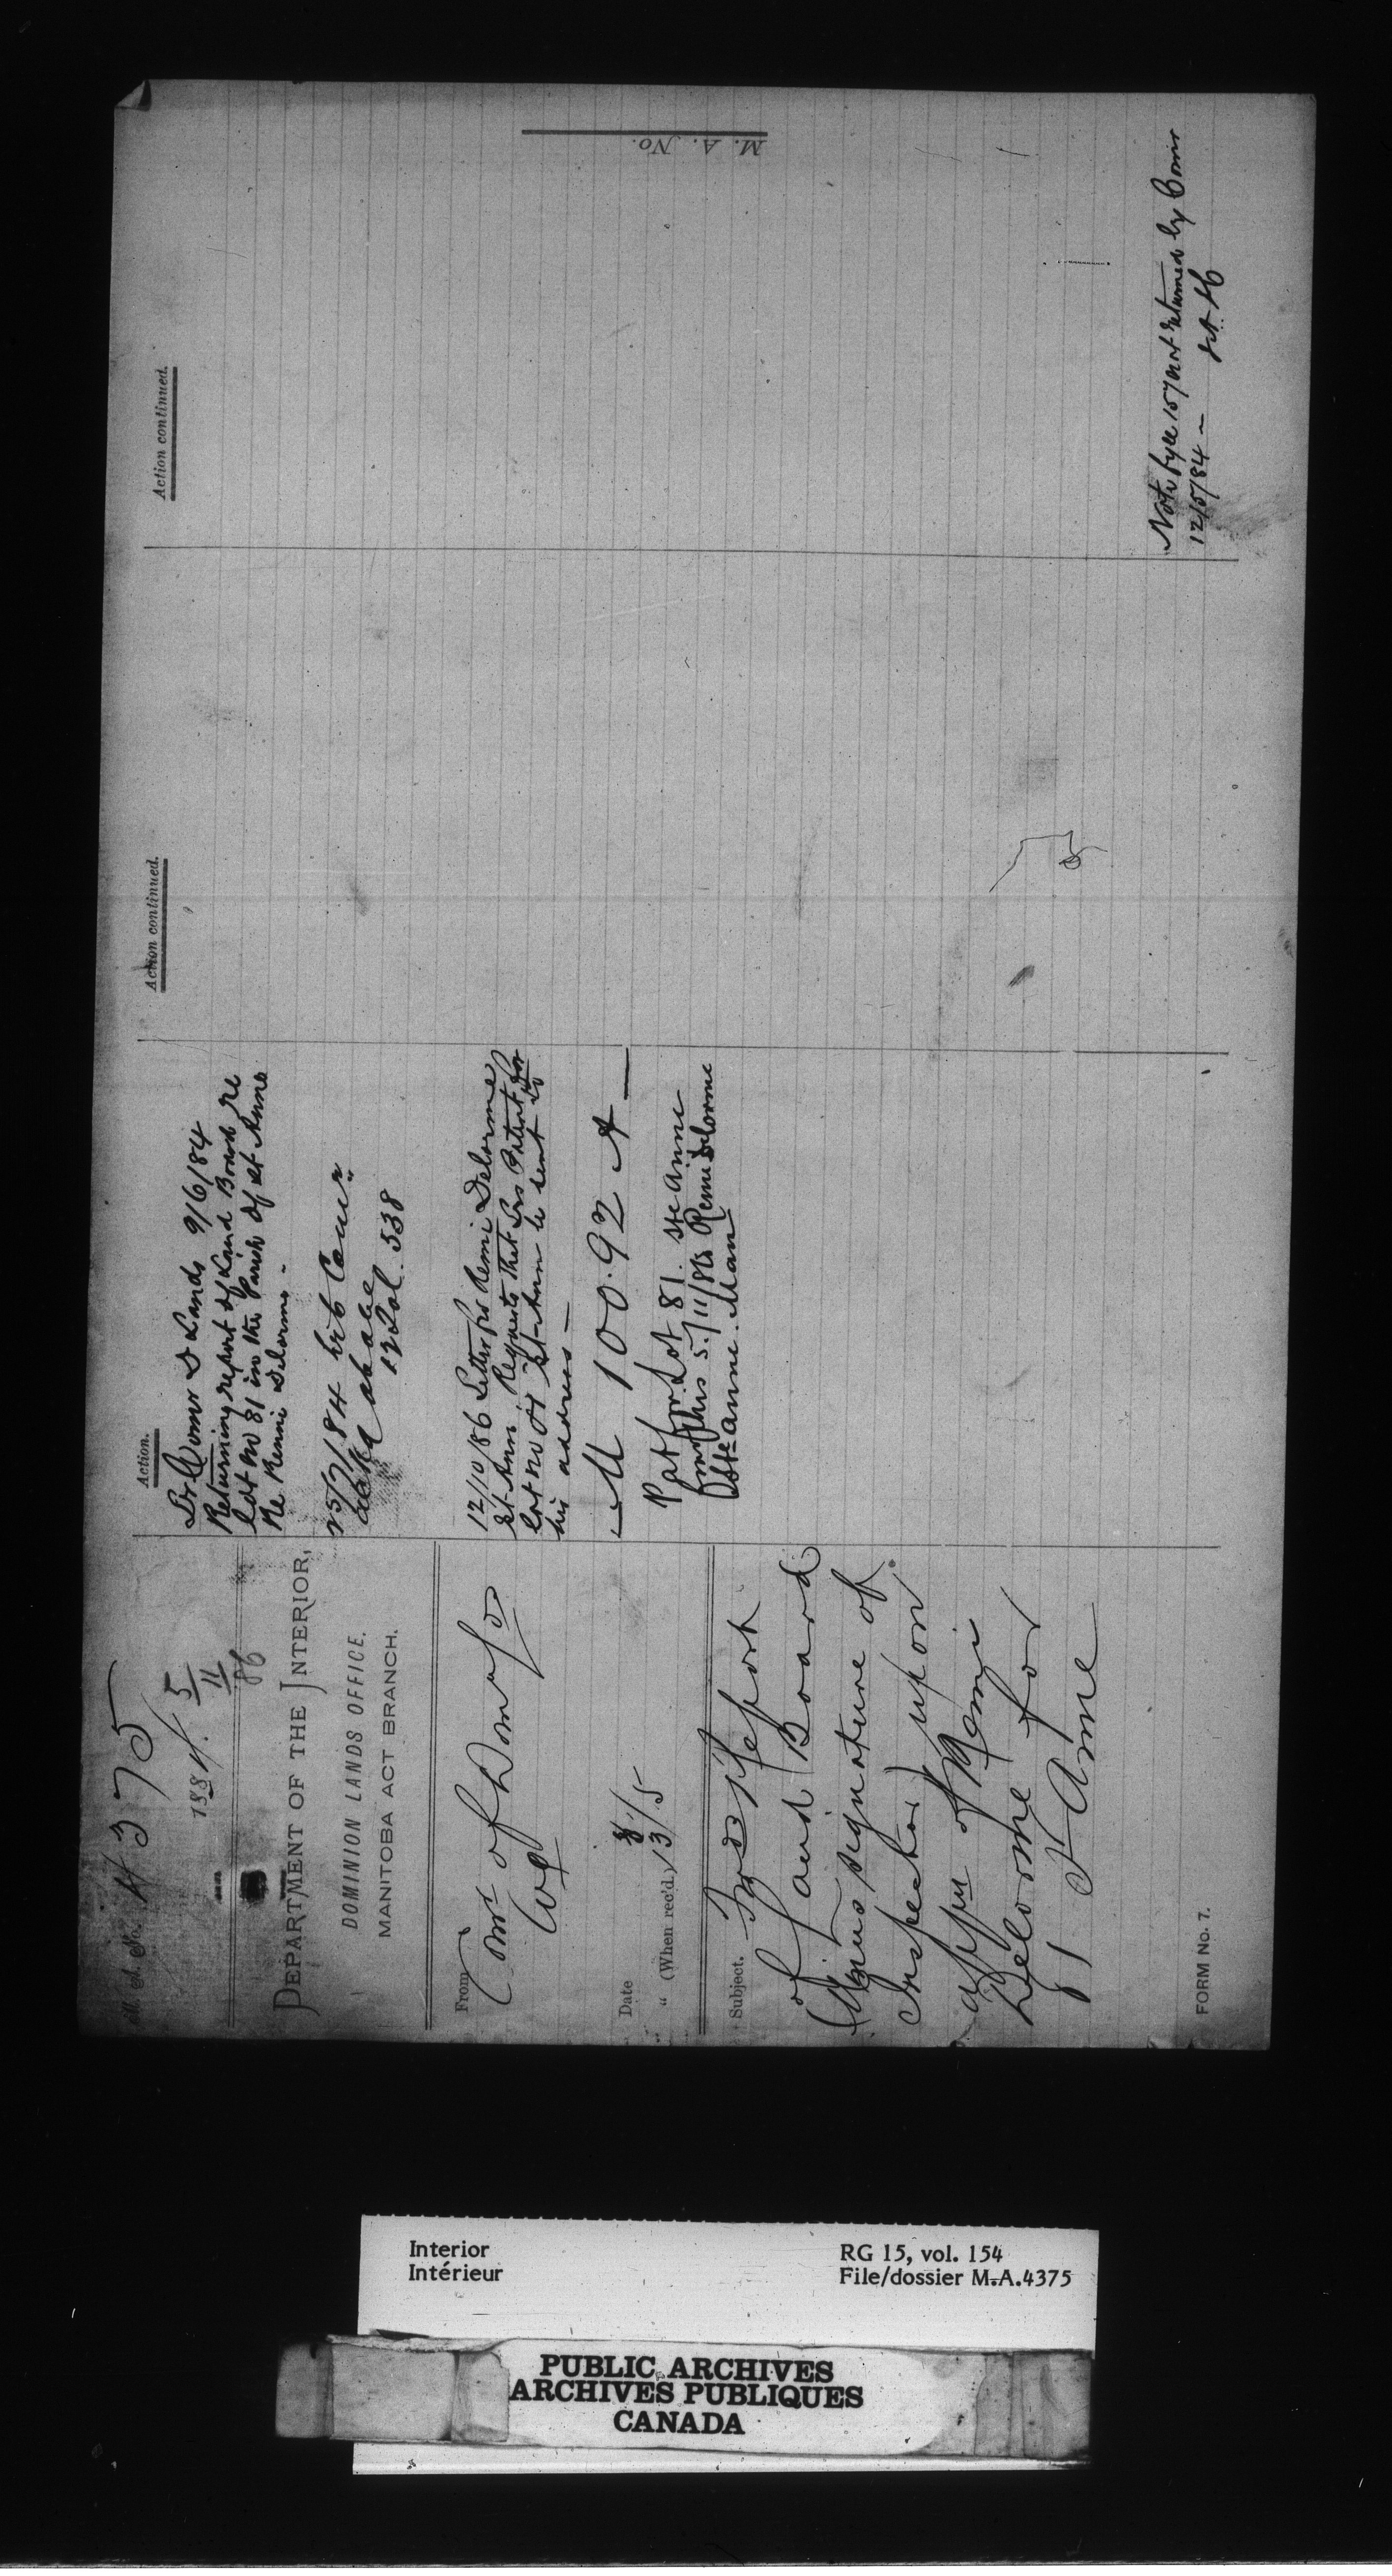 M. A. No. 4375
1884.
5
11
86
DEPARTMENT OF THE INTERIOR,
DOMINION LANDS OFFICE.
MANITOBA ACT BRANCH.
From
Comr of Dom
Date
" (When rec'd.) 13/5
Subject. Report
of Land Board
(Minus signature of
Inspector) upon
appn of Remi
Delorme for
81 St Anne
FORM No. 7.
Action.
Comr D Lands 9/6/84
Returning report of Land Board re
lot no 81 in the Parish of St Anne
Re Remi Delorme -
538
12/10/86 Letter fro Remi Delorme
St Ann, Requests that his Patent for
lot no 81 St Ann be sent to
his address —
100.92 A
Pat for Lot 81. Ste Anne
this 5/11/86 Remi Delorme
Ste Anne. Man
Action continued.
Action continued.
Note fyle 157 not returned by Comr
12/5/84 —
M. A. No.
Interior
Intérieur
RG 15, vol. 154
File/dossier M.A.4375
PUBLIC ARCHIVES
ARCHIVES PUBLIQUES
CANADA